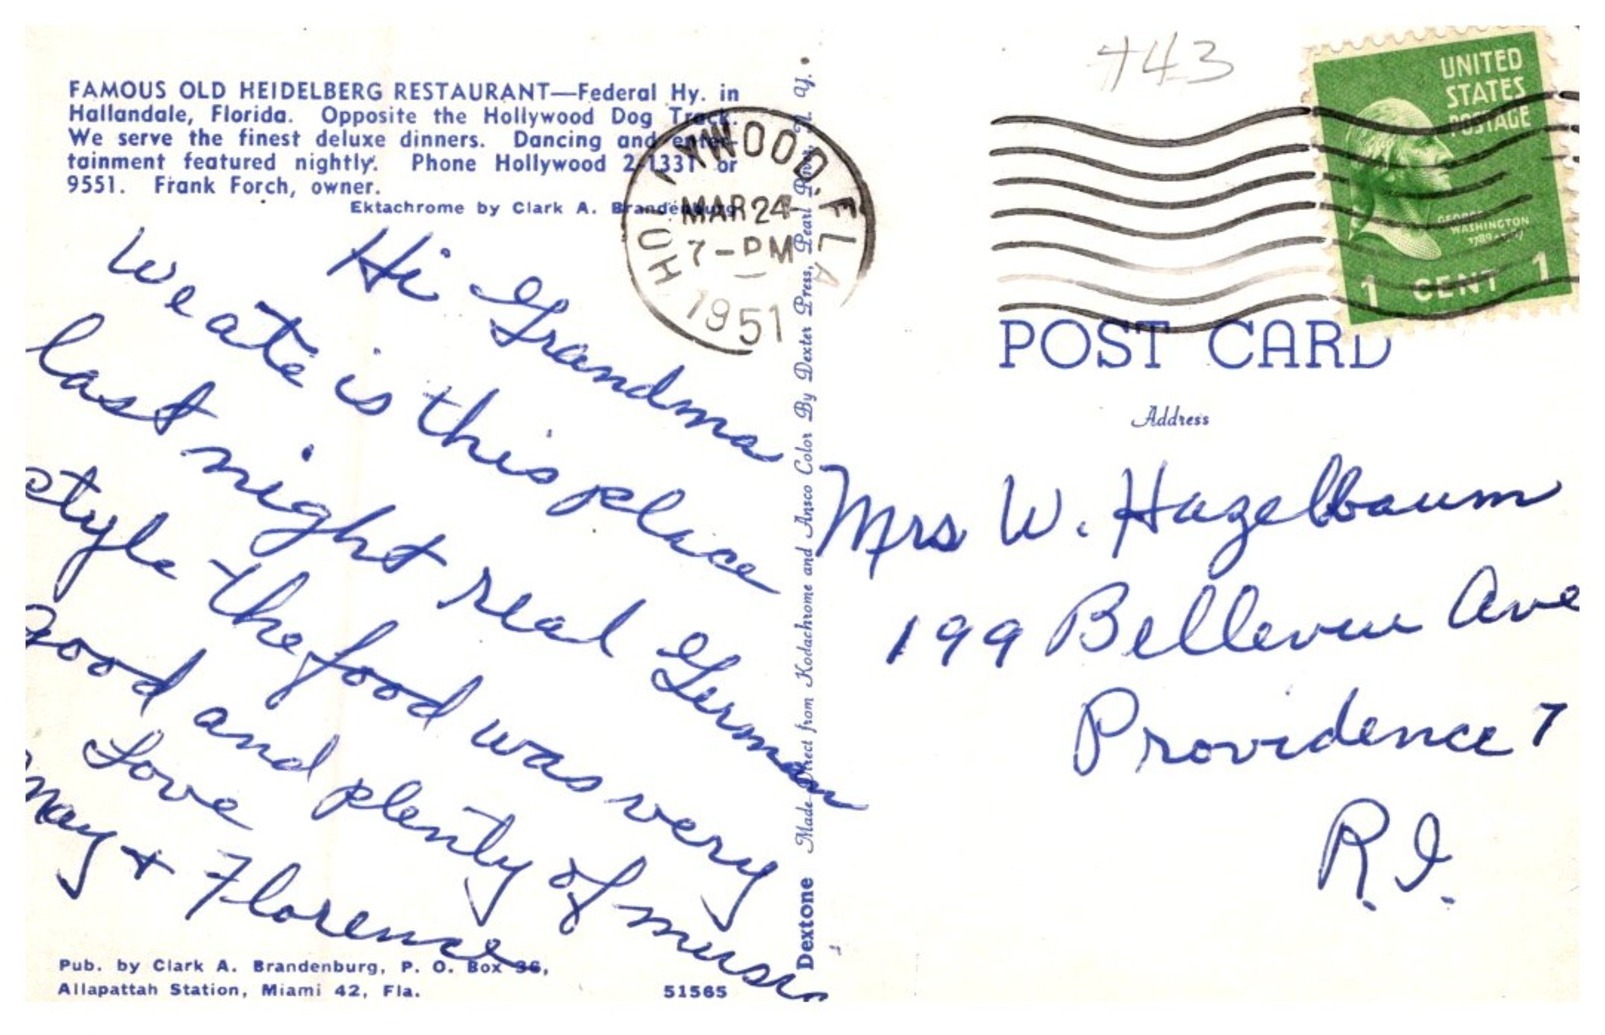 FAMOUS OLD HEIDELBERG RESTAURANT—Federal Hy. in
Hallandale, Florida. Opposite the Hollywood Dog Track.
We serve the finest deluxe dinners. Dancing and enter-
tainment featured nightly. Phone Hollywood 2-1331 or
9551. Frank Forch, owner.
Ektachrome by Clark A. Brandenburg
Hi Grandma
We ate is this place
last night real German
style the food was very
good and plenty of music
Love
May + Florence
Pub. by Clark A. Brandenburg, P. O. Box 36,
Allapattah Station, Miami 42, Fla.
51565
Dextone Made Direct from Kodachrome and Ansco Color By Dexter Press, Pearl River, N. Y.
HOLLYWOOD, FLA
MAR 24
7-PM
1951
743
UNITED
STATES
POSTAGE
GEORGE
WASHINGTON
1789-1797
1 CENT 1
POST CARD
Address
Mrs W. Hazelbaum
199 Bellevue Ave
Providence 7
R.I.